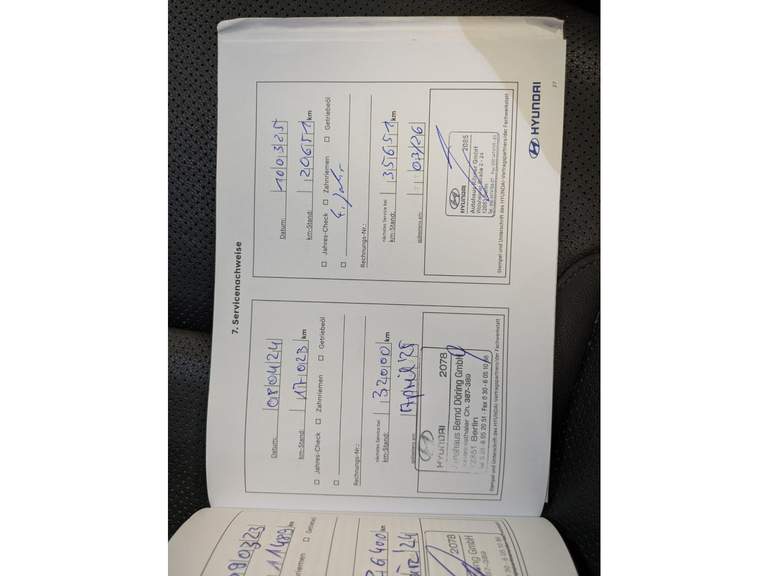 7. Servicenachweise
Datum: 08|04|24
km-Stand: 17023 km
☐ Jahres-Check ☐ Zahnriemen ☐ Getriebeöl
☐
Rechnungs-Nr.:
nächster Service bei
km-Stand: 32000 km
spätestens am: April '25
HYUNDAI 2078
Autohaus Bernd Döring GmbH
Ch. 387-389
Berlin
Stempel und Unterschrift des HYUNDAI-Vertragspartners/der Fachwerkstatt
Datum: 10|03|25
km-Stand: 20651 km
☐ Jahres-Check ☐ Zahnriemen ☐ Getriebeöl
☐
Rechnungs-Nr.:
nächster Service bei
km-Stand: 35651 km
spätestens am: 03/26
HYUNDAI 2085
GmbH
Stempel und Unterschrift des HYUNDAI-Vertragspartners/der Fachwerkstatt
HYUNDAI
27
0323
11489
Zahnriemen
km
'24
2078
Döring GmbH
387-389